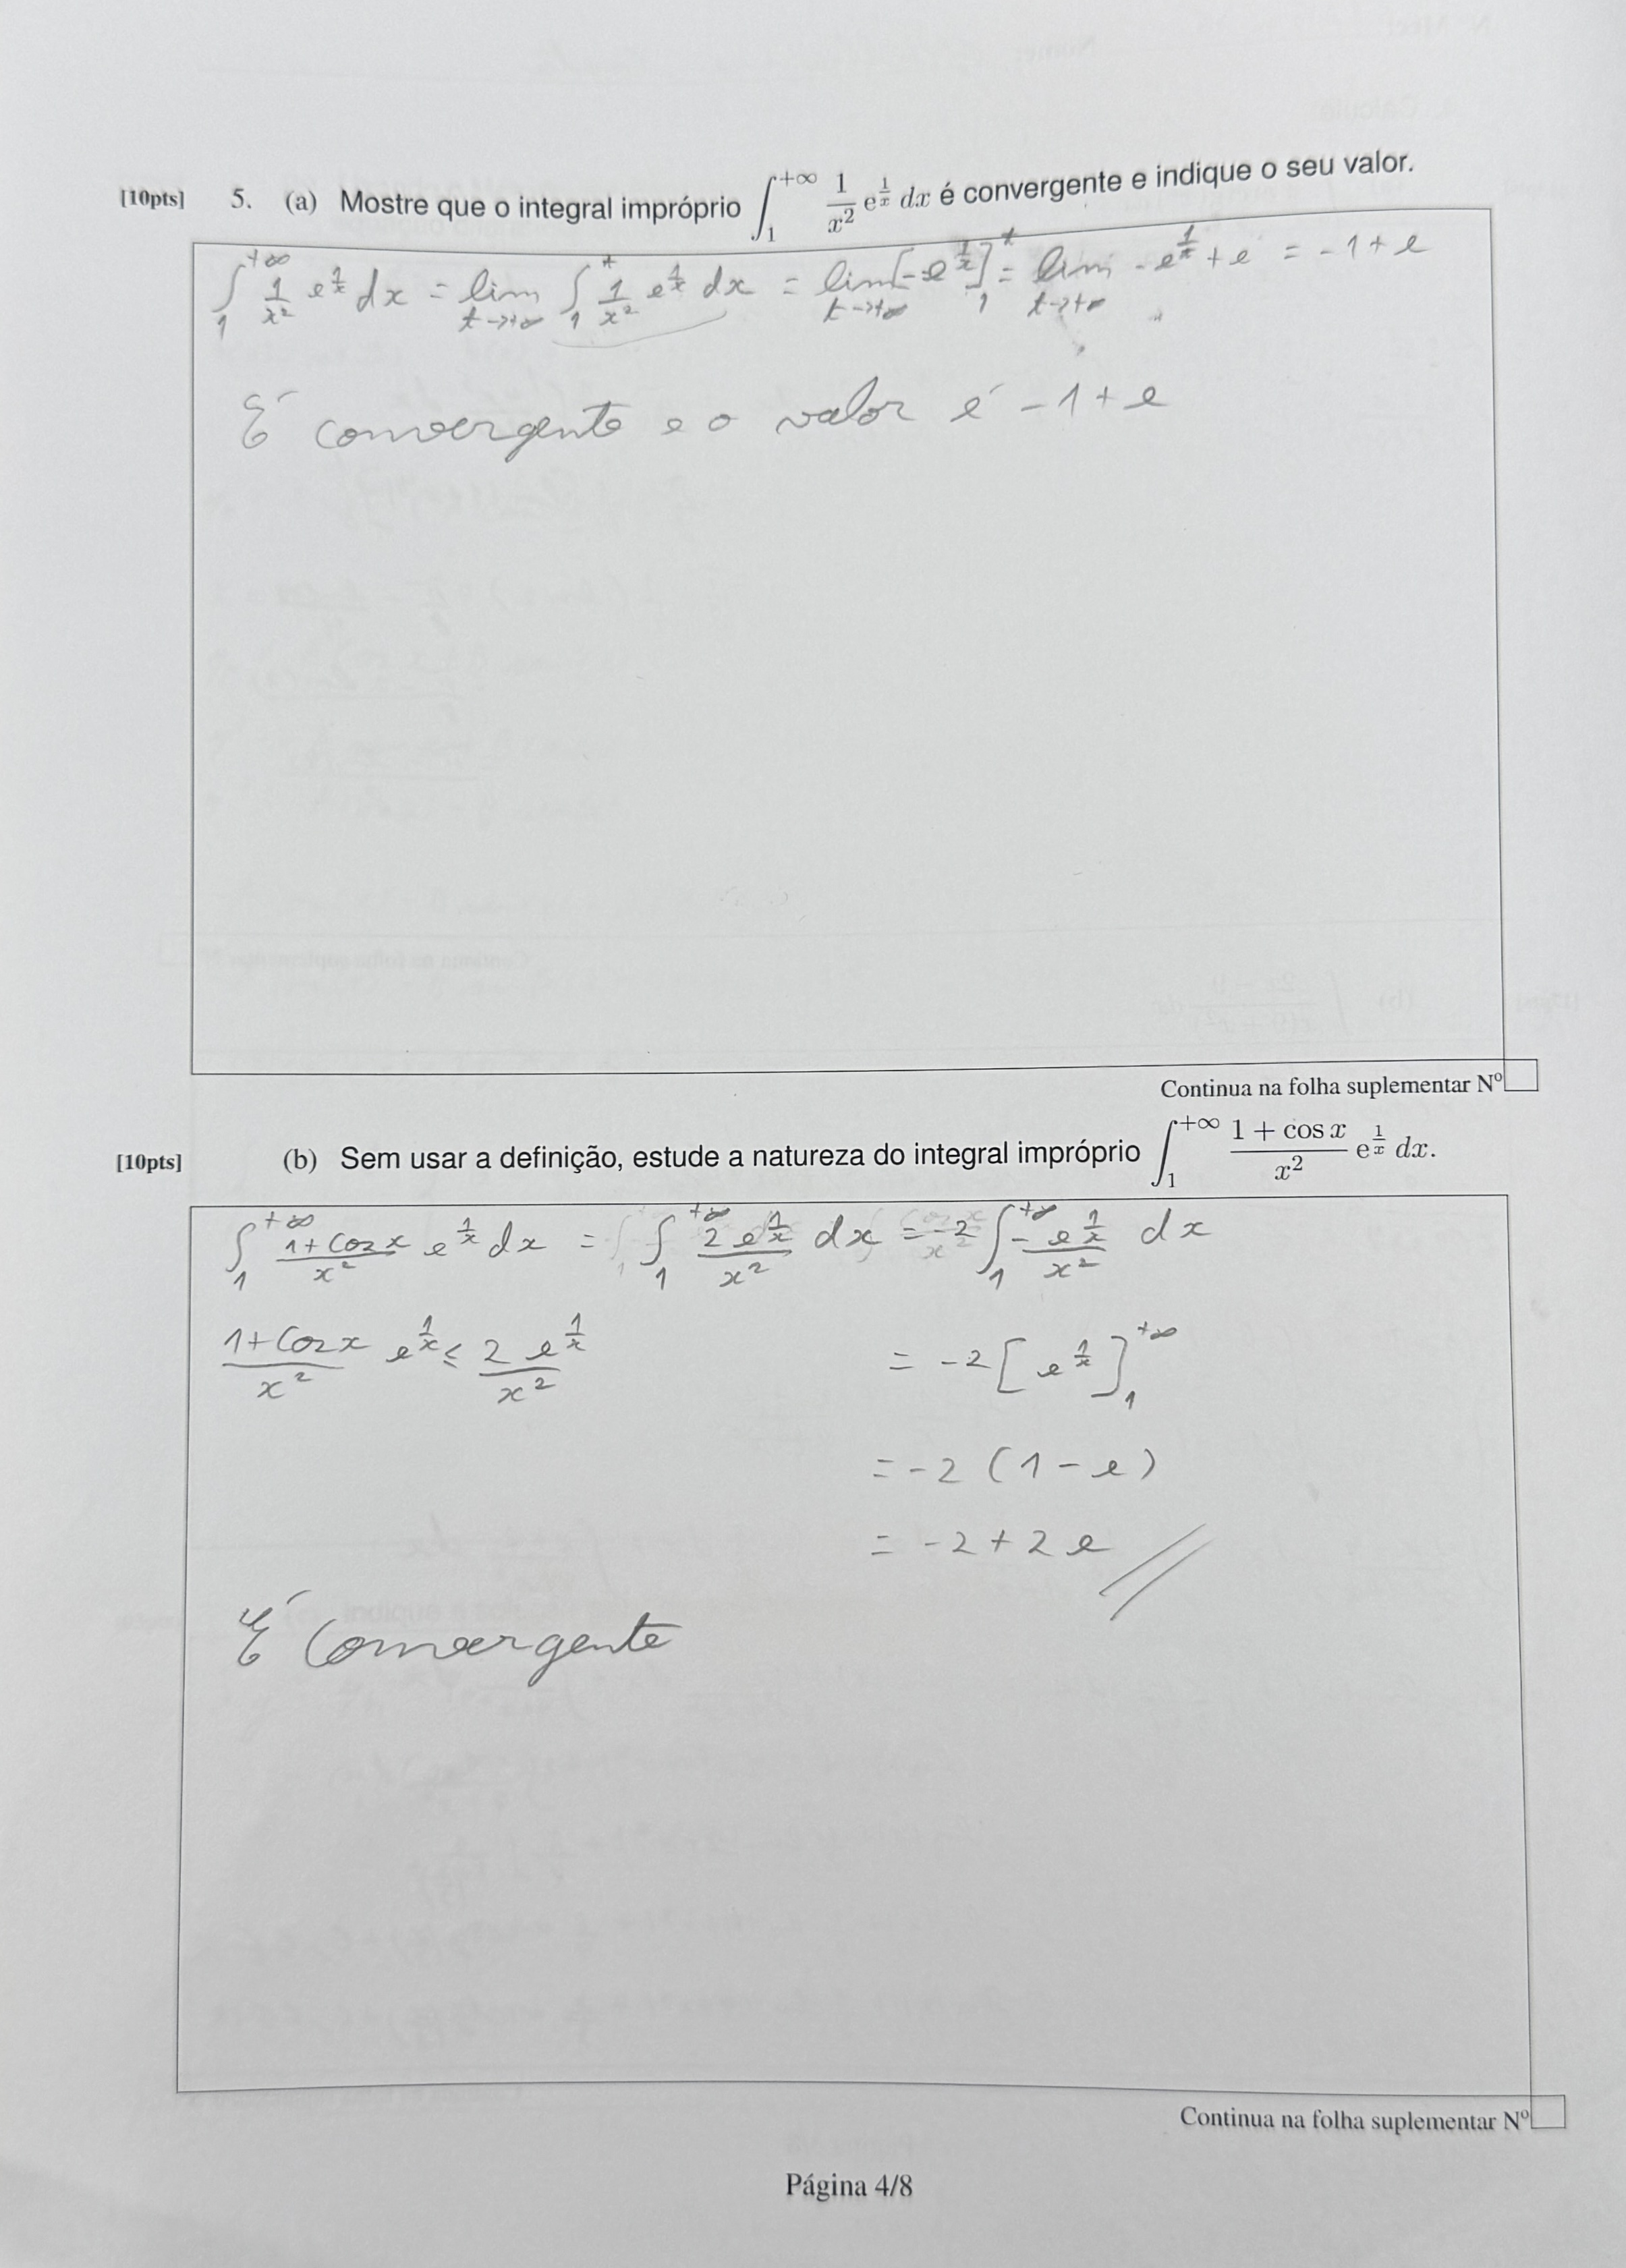 [10pts] 5. (a) Mostre que o integral impróprio ∫₁^{+∞} 1/x² e^{1/x} dx é convergente e indique o seu valor.
∫₁^{+∞} 1/x² e^{1/x} dx = lim_{t→+∞} ∫₁^t 1/x² e^{1/x} dx = lim_{t→+∞} [-e^{1/x}]₁^t = lim_{t→+∞} -e^{1/t} + e = -1 + e
É convergente e o valor é -1 + e
Continua na folha suplementar Nº
[10pts] (b) Sem usar a definição, estude a natureza do integral impróprio ∫₁^{+∞} (1 + cos x)/x² e^{1/x} dx.
∫₁^{+∞} (1 + cos x)/x² e^{1/x} dx = ∫₁^{+∞} (2 e^{1/x})/x² dx = -2 ∫₁^{+∞} - e^{1/x}/x² dx
(1 + cos x)/x² e^{1/x} ≤ (2 e^{1/x})/x²
= -2 [e^{1/x}]₁^{+∞}
= -2 (1 - e)
= -2 + 2e //
É Convergente
Continua na folha suplementar Nº
Página 4/8